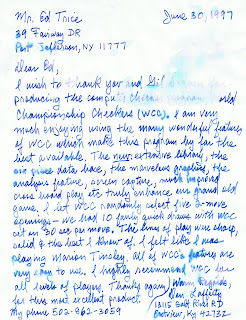 Mr. Ed Trice
June 30, 1997
39 Fairway DR
Port Jefferson, NY 11777
Dear Ed,
I wish to thank you and Gil for
producing the computer program World
Championship Checkers (WCC). I am very
much enjoying using the many wonderful features
of WCC which make this program by far the
best available. The new extensive library, the
six piece data base, the marvelous graphics, the
analysis feature, screen capture, much improved
cross board play etc. truly enhance our grand old
game. I let WCC randomly select five 3-move
openings - we had 10 finely draws with WCC
set on 30 sec per move. The lines of play was sharp,
valid & the best I know of. I felt like I was
playing Marion Tinsley, all of WCC's features are
very easy to use. I highly recommend WCC for
all levels of players. Thanks again
for this most excellent product.
Warm Regards,
Don Lafferty
1315 Salt River RD
My phone 502-862-3059
KY 42732